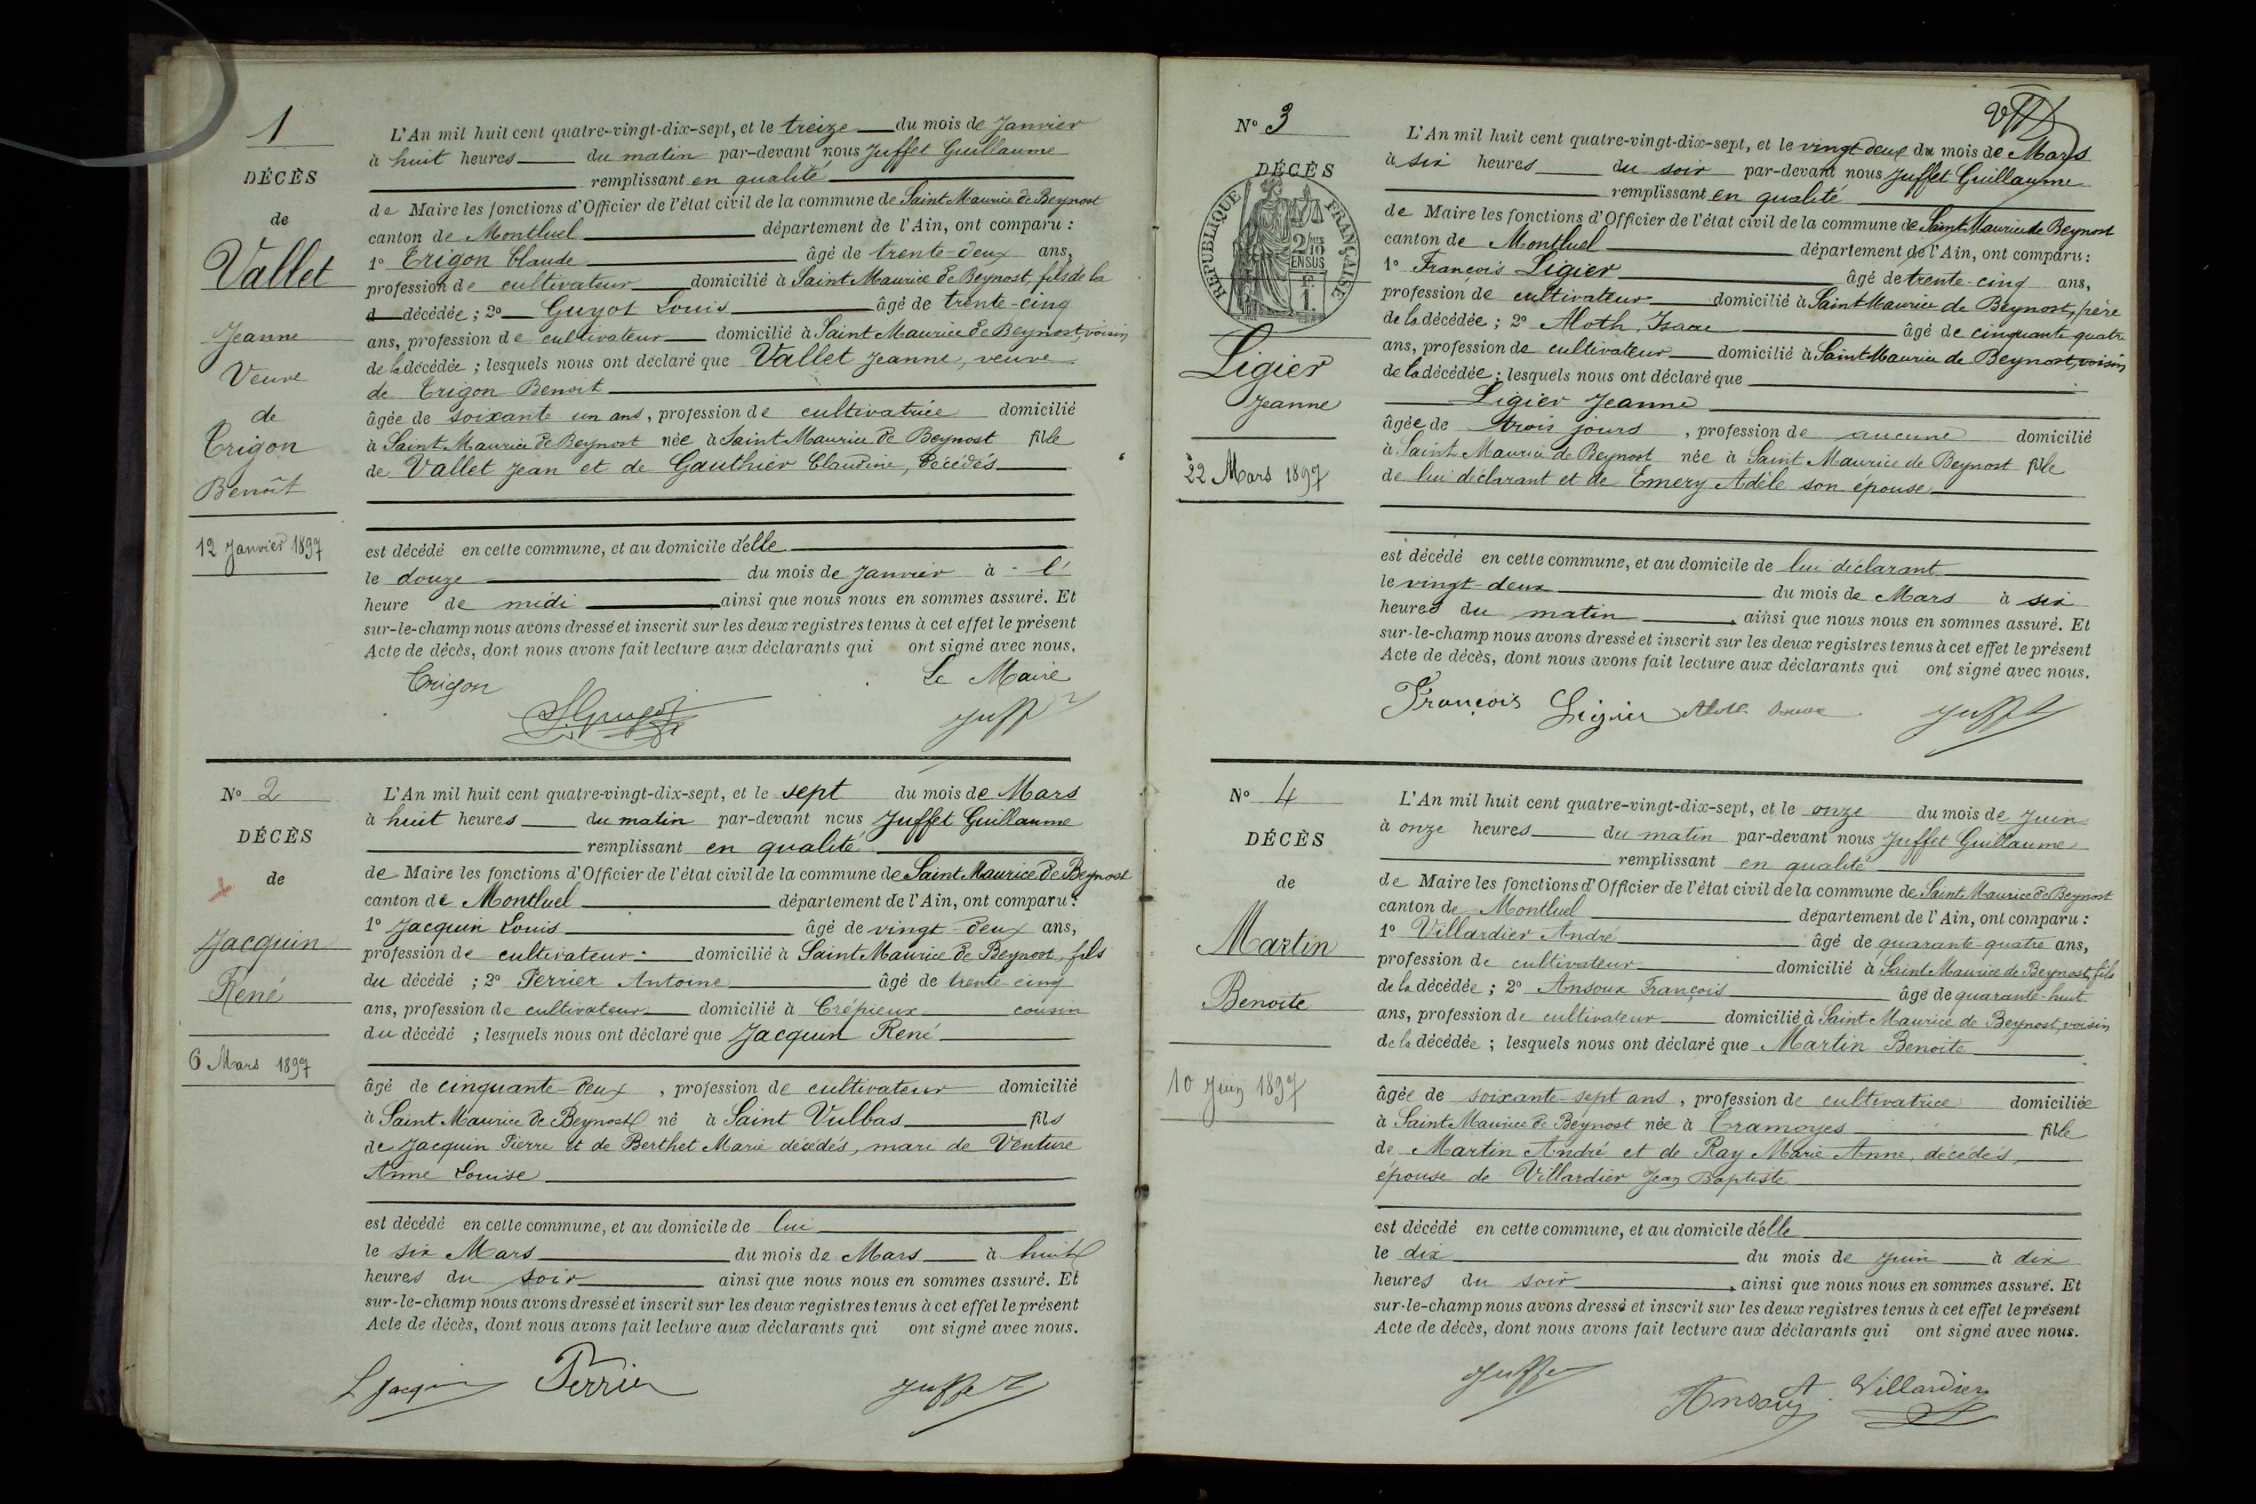 1
DÉCÈS
de
Vallet
Jeanne
Veuve
de
Trigon
Benoît
12 Janvier 1897
L'An mil huit cent quatre-vingt-dix-sept, et le treize du mois de Janvier
à huit heures du matin par-devant nous Juffet Guillaume
remplissant en qualité
de Maire les fonctions d'Officier de l'état civil de la commune de Saint Maurice de Beynost
canton de Montluel département de l'Ain, ont comparu :
1º Trigon Claude âgé de trente-deux ans,
profession de cultivateur domicilié à Saint Maurice de Beynost, fils de la
décédée ; 2º Guyot Louis âgé de trente-cinq
ans, profession de cultivateur domicilié à Saint Maurice de Beynost, voisin
de la décédée ; lesquels nous ont déclaré que Vallet Jeanne, veuve
de Trigon Benoit
âgée de soixante un ans, profession de cultivatrice domicilié
à Saint Maurice de Beynost née à Saint Maurice de Beynost fille
de Vallet Jean et de Gauthier Claudine, décédés
est décédé en cette commune, et au domicile d'elle
le douze du mois de Janvier à l'
heure de midi ainsi que nous nous en sommes assuré. Et
sur-le-champ nous avons dressé et inscrit sur les deux registres tenus à cet effet le présent
Acte de décès, dont nous avons fait lecture aux déclarants qui ont signé avec nous.
Trigon Le Maire
LGuyot Juffet
Nº 2
DÉCÈS
de
Jacquin
René
6 Mars 1897
L'An mil huit cent quatre-vingt-dix-sept, et le sept du mois de Mars
à huit heures du matin par-devant nous Juffet Guillaume
remplissant en qualité
de Maire les fonctions d'Officier de l'état civil de la commune de Saint Maurice de Beynost
canton de Montluel département de l'Ain, ont comparu :
1º Jacquin Louis âgé de vingt-deux ans,
profession de cultivateur domicilié à Saint Maurice de Beynost, fils
du décédé ; 2º Perrier Antoine âgé de trente-cinq
ans, profession de cultivateur domicilié à Crépieux cousin
du décédé ; lesquels nous ont déclaré que Jacquin René
âgé de cinquante-deux, profession de cultivateur domicilié
à Saint Maurice de Beynost né à Saint Vulbas fils
de Jacquin Pierre et de Berthet Marie décédés, mari de Venture
Anne Louise
est décédé en cette commune, et au domicile de lui
le six Mars du mois de Mars à huit
heures du soir ainsi que nous nous en sommes assuré. Et
sur-le-champ nous avons dressé et inscrit sur les deux registres tenus à cet effet le présent
Acte de décès, dont nous avons fait lecture aux déclarants qui ont signé avec nous.
L Jacquin Perrier Juffet
Nº 3
DÉCÈS
RÉPUBLIQUE FRANÇAISE
2/10
EN SUS
Ligier
Jeanne
22 Mars 1897
L'An mil huit cent quatre-vingt-dix-sept, et le vingt-deux du mois de Mars
à six heures du soir par-devant nous Juffet Guillaume
remplissant en qualité
de Maire les fonctions d'Officier de l'état civil de la commune de Saint Maurice de Beynost
canton de Montluel département de l'Ain, ont comparu :
1º François Ligier âgé de trente-cinq ans,
profession de cultivateur domicilié à Saint Maurice de Beynost, père
de la décédée ; 2º Aloth Isaac âgé de cinquante quatre
ans, profession de cultivateur domicilié à Saint Maurice de Beynost, voisin
de la décédée ; lesquels nous ont déclaré que
Ligier Jeanne
âgée de trois jours, profession de aucune domicilié
à Saint Maurice de Beynost née à Saint Maurice de Beynost fille
de lui déclarant et de Emery Adèle son épouse
est décédé en cette commune, et au domicile de lui déclarant
le vingt-deux du mois de Mars à six
heures du matin ainsi que nous nous en sommes assuré. Et
sur-le-champ nous avons dressé et inscrit sur les deux registres tenus à cet effet le présent
Acte de décès, dont nous avons fait lecture aux déclarants qui ont signé avec nous.
François Ligier Juffet
Nº 4
DÉCÈS
de
Martin
Benoite
10 Juin 1897
L'An mil huit cent quatre-vingt-dix-sept, et le onze du mois de Juin
à onze heures du matin par-devant nous Juffet Guillaume
remplissant en qualité
de Maire les fonctions d'Officier de l'état civil de la commune de Saint Maurice de Beynost
canton de Montluel département de l'Ain, ont comparu :
1º Villardier André âgé de quarante-quatre ans,
profession de cultivateur domicilié à Saint Maurice de Beynost, fils
de la décédée ; 2º Ansoux François âgé de quarante-huit
ans, profession de cultivateur domicilié à Saint Maurice de Beynost, voisin
de la décédée ; lesquels nous ont déclaré que Martin Benoite
âgée de soixante-sept ans, profession de cultivatrice domiciliée
à Saint Maurice de Beynost née à Tramoyes fille
de Martin André et de Ray Marie Anne, décédés,
épouse de Villardier Jean Baptiste
est décédé en cette commune, et au domicile d'elle
le dix du mois de Juin à dix
heures du soir ainsi que nous nous en sommes assuré. Et
sur-le-champ nous avons dressé et inscrit sur les deux registres tenus à cet effet le présent
Acte de décès, dont nous avons fait lecture aux déclarants qui ont signé avec nous.
Juffet Ansoux A Villardier